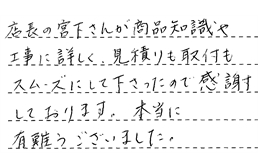 店長の宮下さんが商品知識や
工事に詳しく、見積りも取付も
スムーズにして下さったので感謝す
しております。本当に
有難うございました。